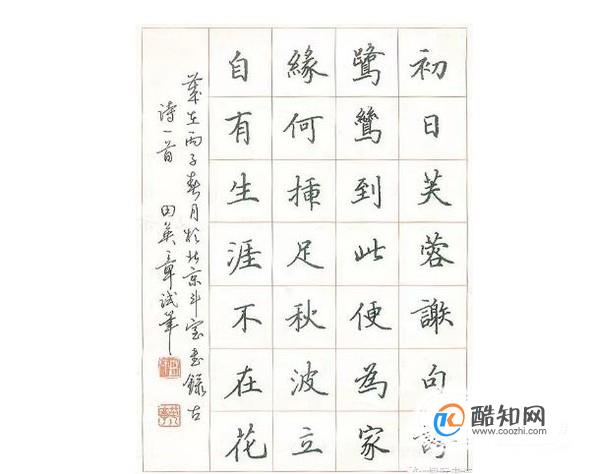 初日芙蓉謝句誇
鷺鷥到此便為家
緣何插足秋波立
自有生涯不在花
歲在丙子春月於北京斗室書錄古
詩一首 田英章試筆
酷知网
www.coozhi.com